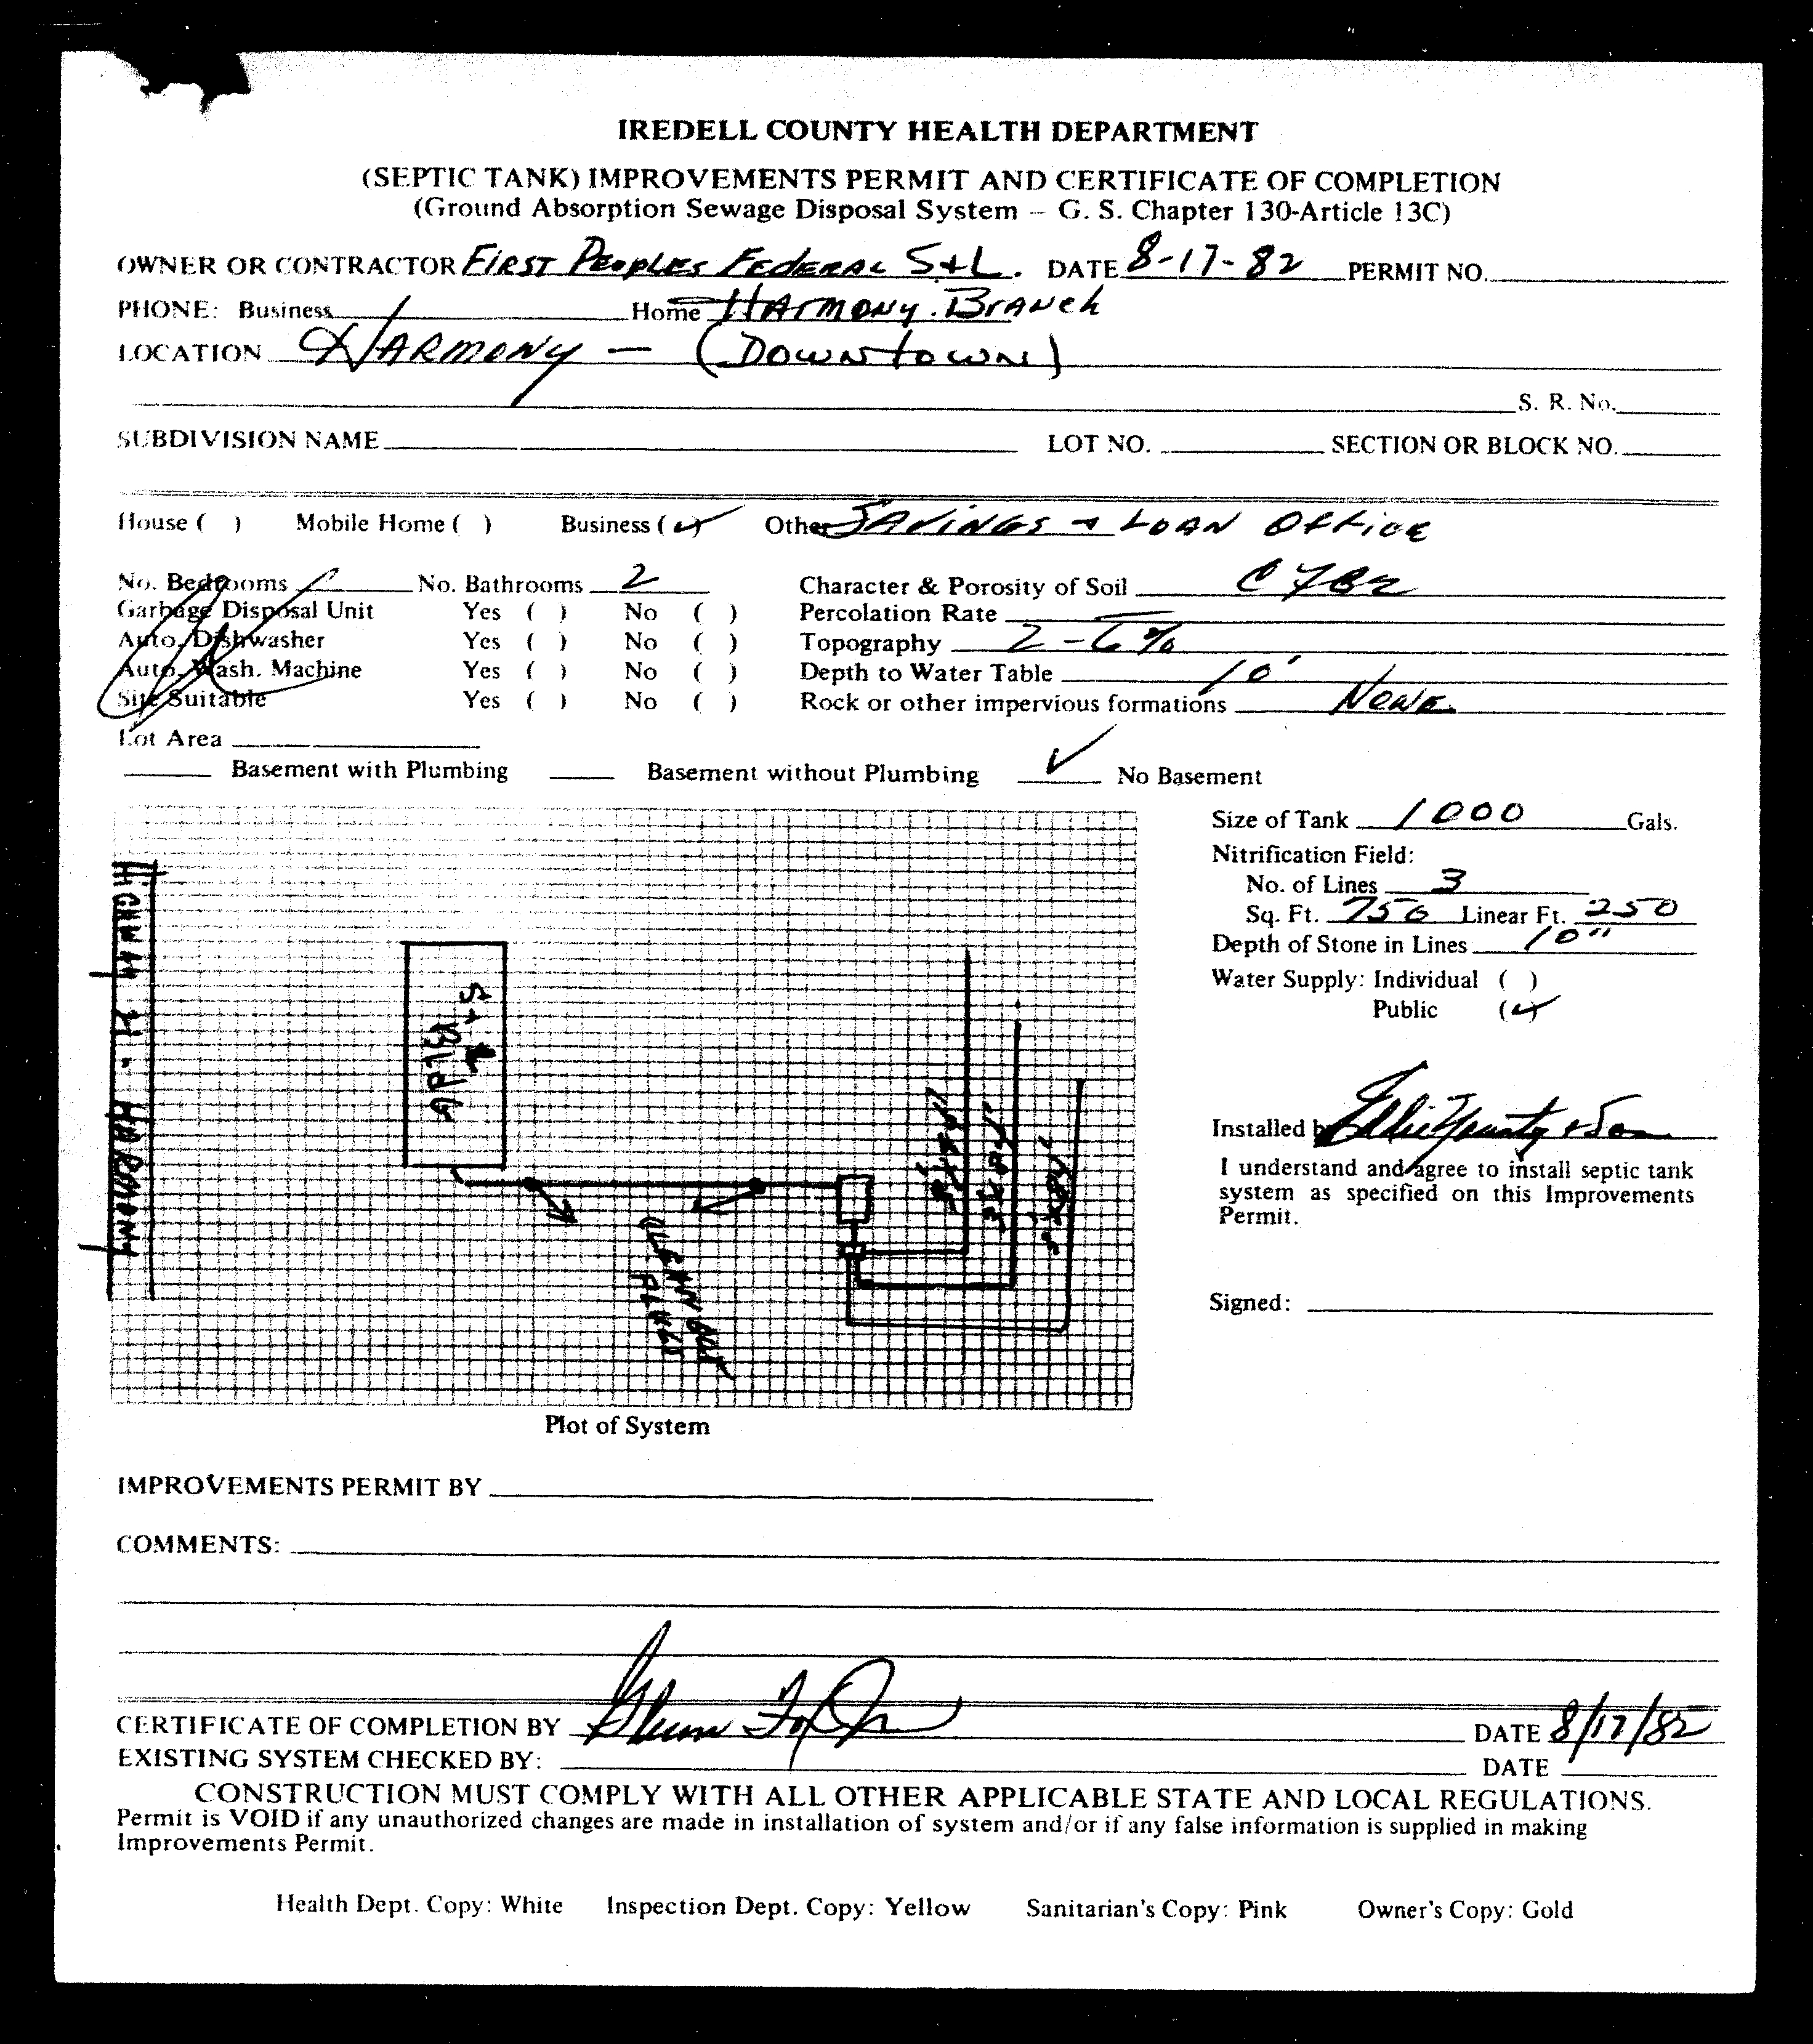 IREDELL COUNTY HEALTH DEPARTMENT
(SEPTIC TANK) IMPROVEMENTS PERMIT AND CERTIFICATE OF COMPLETION
(Ground Absorption Sewage Disposal System – G. S. Chapter 130-Article 13C)
OWNER OR CONTRACTOR FIRST PEOPLES FEDERAL S+L. DATE 8-17-82 PERMIT NO.
PHONE: Business Home HARMONY BRANCH
LOCATION HARMONY — (DOWNTOWN)
S. R. No.
SUBDIVISION NAME LOT NO. SECTION OR BLOCK NO.
House ( ) Mobile Home ( ) Business (✓) Other SAVINGS + LOAN OFFICE
No. Bedrooms No. Bathrooms 2 Character & Porosity of Soil
Garbage Disposal Unit Yes ( ) No ( ) Percolation Rate —
Auto. Dishwasher Yes ( ) No ( ) Topography 2-6%
Auto. Wash. Machine Yes ( ) No ( ) Depth to Water Table 10'
Site Suitable Yes ( ) No ( ) Rock or other impervious formations NONE
Lot Area
Basement with Plumbing Basement without Plumbing ✓ No Basement
Size of Tank 1000 Gals.
Nitrification Field:
No. of Lines 3
Sq. Ft. 750 Linear Ft. 250
Depth of Stone in Lines 10"
Water Supply: Individual ( )
Public (✓)
HIGHWAY 21 - HARMONY
S+L
BLDG
CLEAN OUT
PLUGS
Installed by
I understand and agree to install septic tank
system as specified on this Improvements
Permit.
Signed:
Plot of System
IMPROVEMENTS PERMIT BY
COMMENTS:
CERTIFICATE OF COMPLETION BY DATE 8/17/82
EXISTING SYSTEM CHECKED BY: DATE
CONSTRUCTION MUST COMPLY WITH ALL OTHER APPLICABLE STATE AND LOCAL REGULATIONS.
Permit is VOID if any unauthorized changes are made in installation of system and/or if any false information is supplied in making
Improvements Permit.
Health Dept. Copy: White Inspection Dept. Copy: Yellow Sanitarian's Copy: Pink Owner's Copy: Gold